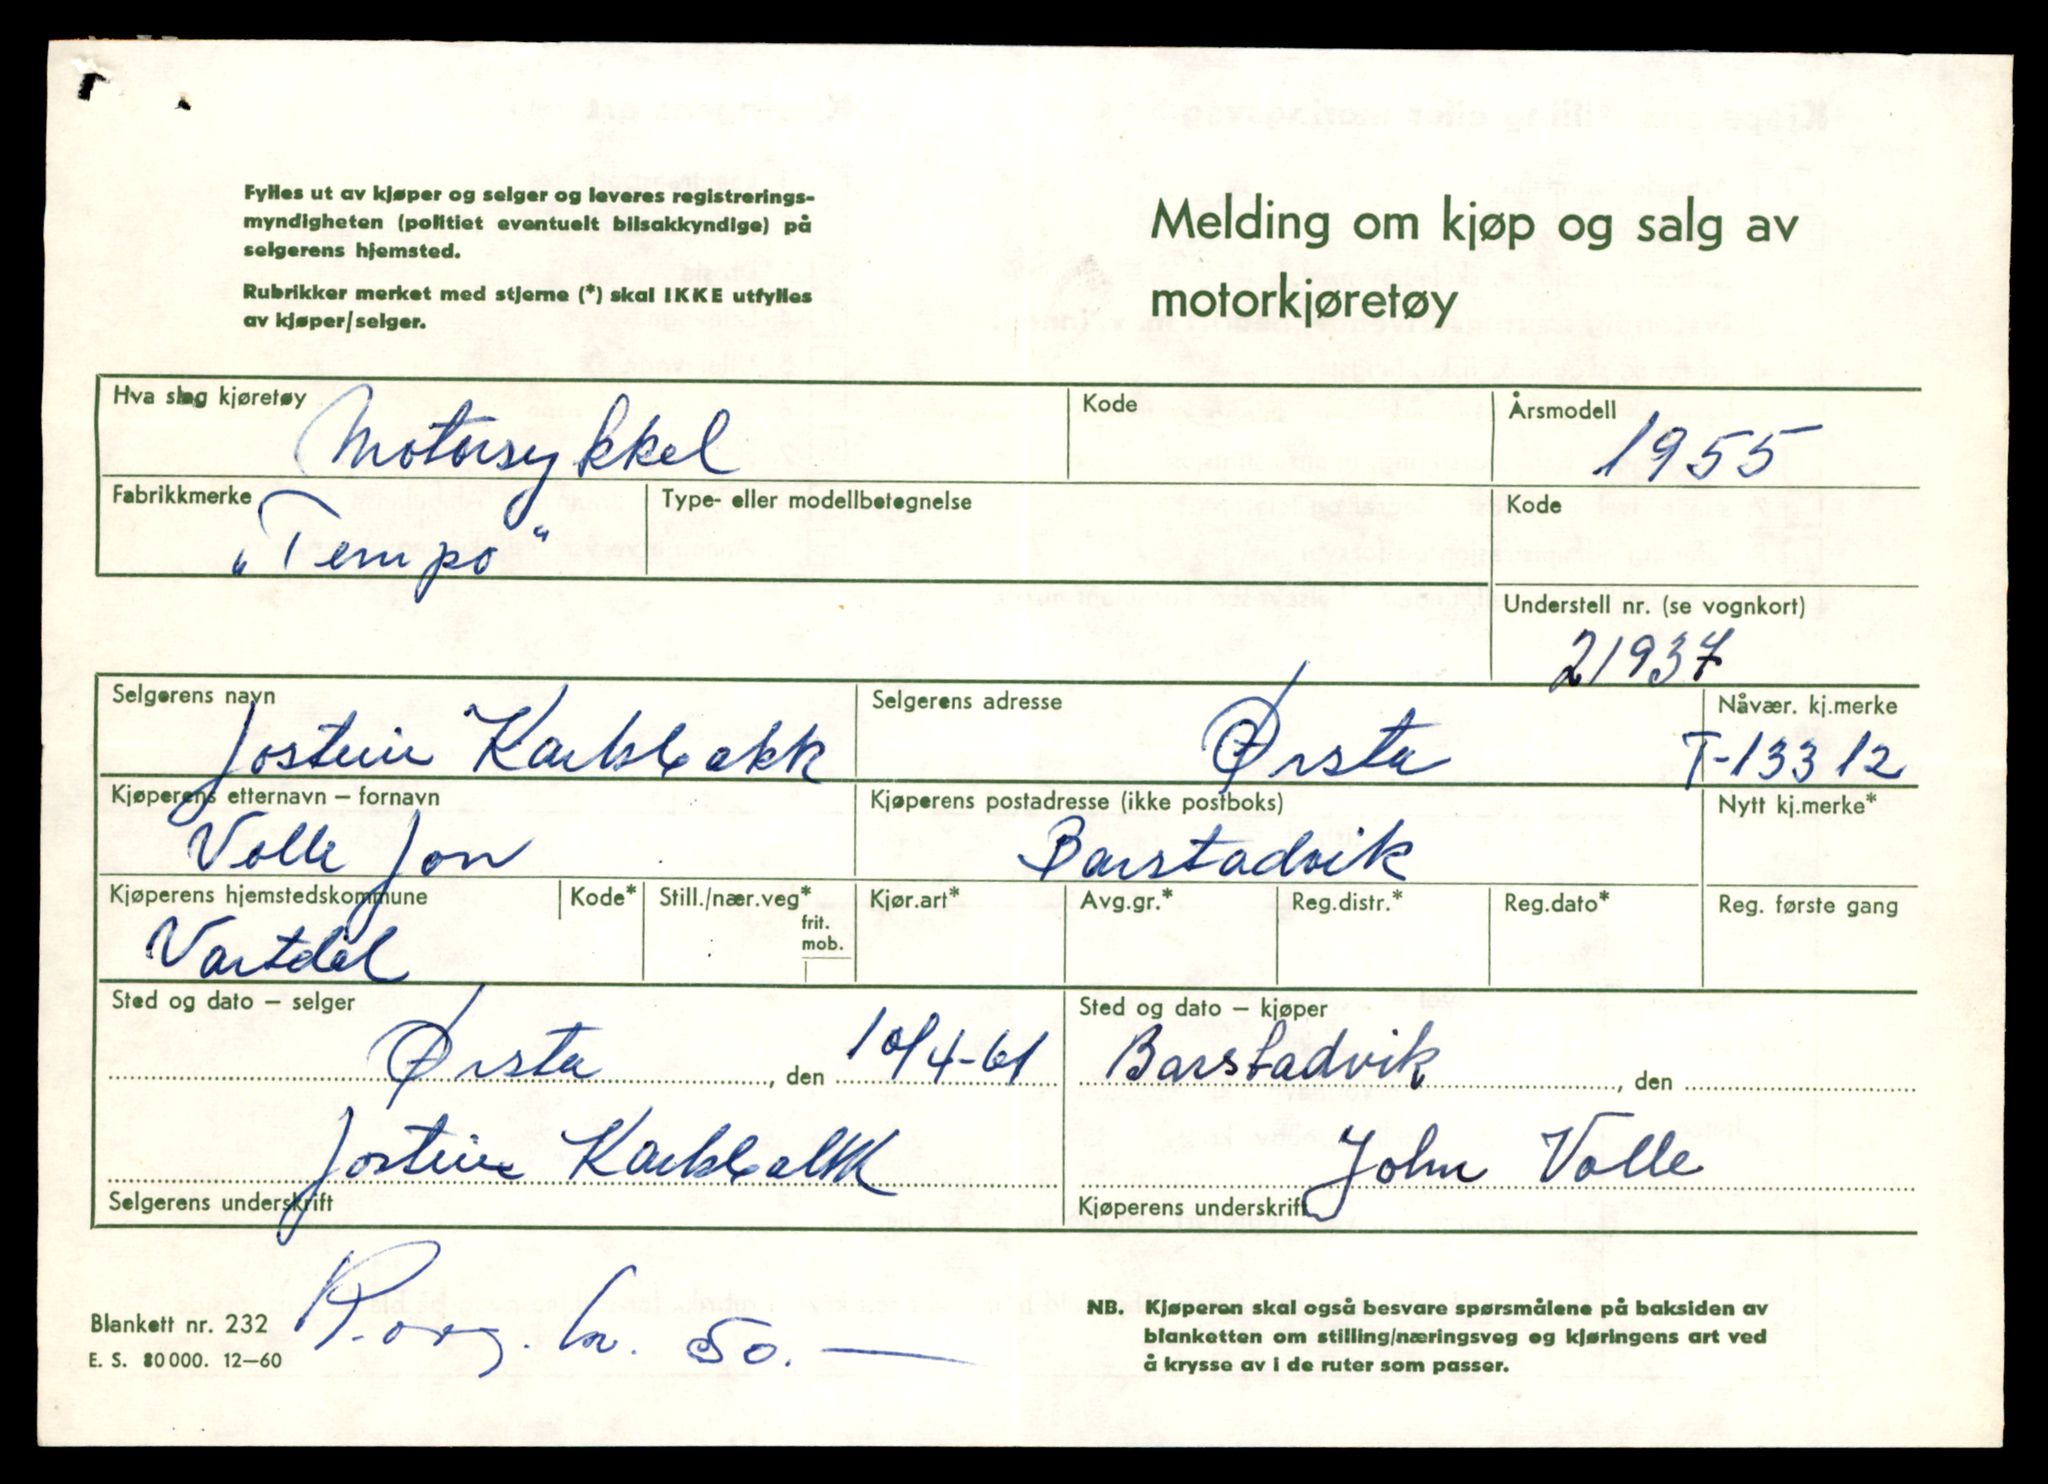 Fylles ut av kjøper og selger og leveres registrerings-
myndigheten (politiet eventuelt bilsakkyndige) på
selgerens hjemsted.
Rubrikker merket med stjerne (*) skal IKKE utfylles
av kjøper/selger.
Melding om kjøp og salg av
motorkjøretøy
Hva slag kjøretøy
Motorsykkel
Kode
Årsmodell
1955
Fabrikkmerke
„Tempo“
Type- eller modellbetegnelse
Kode
Understell nr. (se vognkort)
21937
Selgerens navn
Jostein Karlsbakk
Selgerens adresse
Ørsta
Nåvær. kj.merke
T-13312
Kjøperens etternavn – fornavn
Volle Jon
Kjøperens postadresse (ikke postboks)
Barstadvik
Nytt kj.merke*
Kjøperens hjemstedskommune
Vartdal
Kode*
Still./nær.veg*
frit.
mob.
Kjør.art*
Avg.gr.*
Reg.distr.*
Reg.dato*
Reg. første gang
Sted og dato – selger
Ørsta, den 10/4-61
Sted og dato – kjøper
Barstadvik, den
Jostein Karlsbakk
Selgerens underskrift
John Volle
Kjøperens underskrift
kr. 50.—
Blankett nr. 232
E. S. 80 000. 12–60
NB. Kjøperen skal også besvare spørsmålene på baksiden av
blanketten om stilling/næringsveg og kjøringens art ved
å krysse av i de ruter som passer.